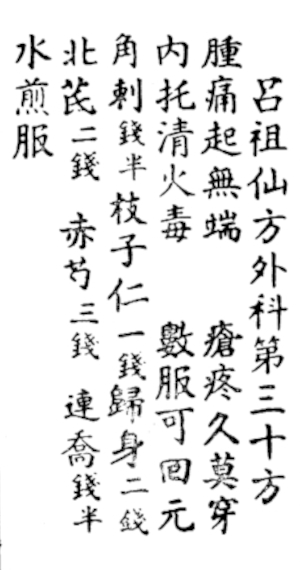 呂祖仙方外科第三十方
腫痛起無端　瘡疼久莫穿
內托清火毒　數服可囘元
角刺錢半枝子仁一錢歸身二錢
北芪二錢　赤芍三錢　連喬錢半
水煎服